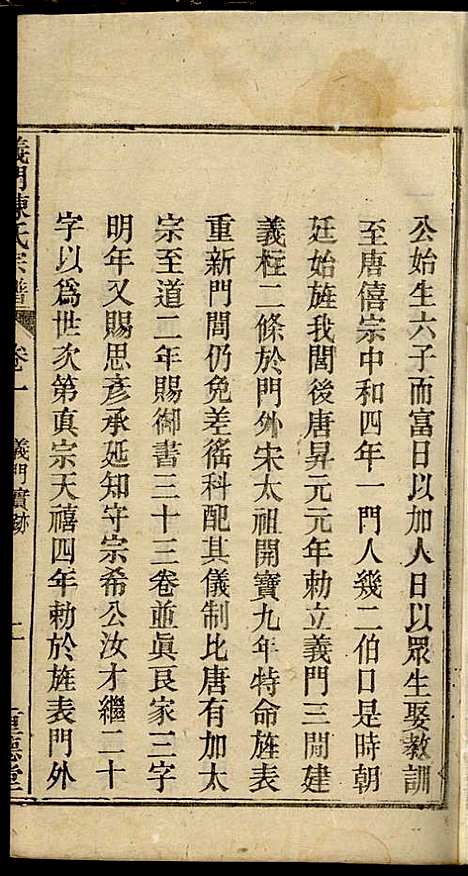 公始生六子而富日以加人日以眾生娶教訓
至唐僖宗中和四年一門人幾二伯口是時朝
廷始旌我閭後唐昇元元年勅立義門三間建
義柱二條於門外宋太祖開寶九年特命旌表
重新門閭仍免差徭科配其儀制比唐有加太
宗至道二年賜御書三十三卷並眞良家三字
明年又賜思彥承延知守宗希公汝才繼二十
字以為世次第真宗天禧四年勅於旌表門外
義門陳氏宗譜 卷一 義門實跡 二